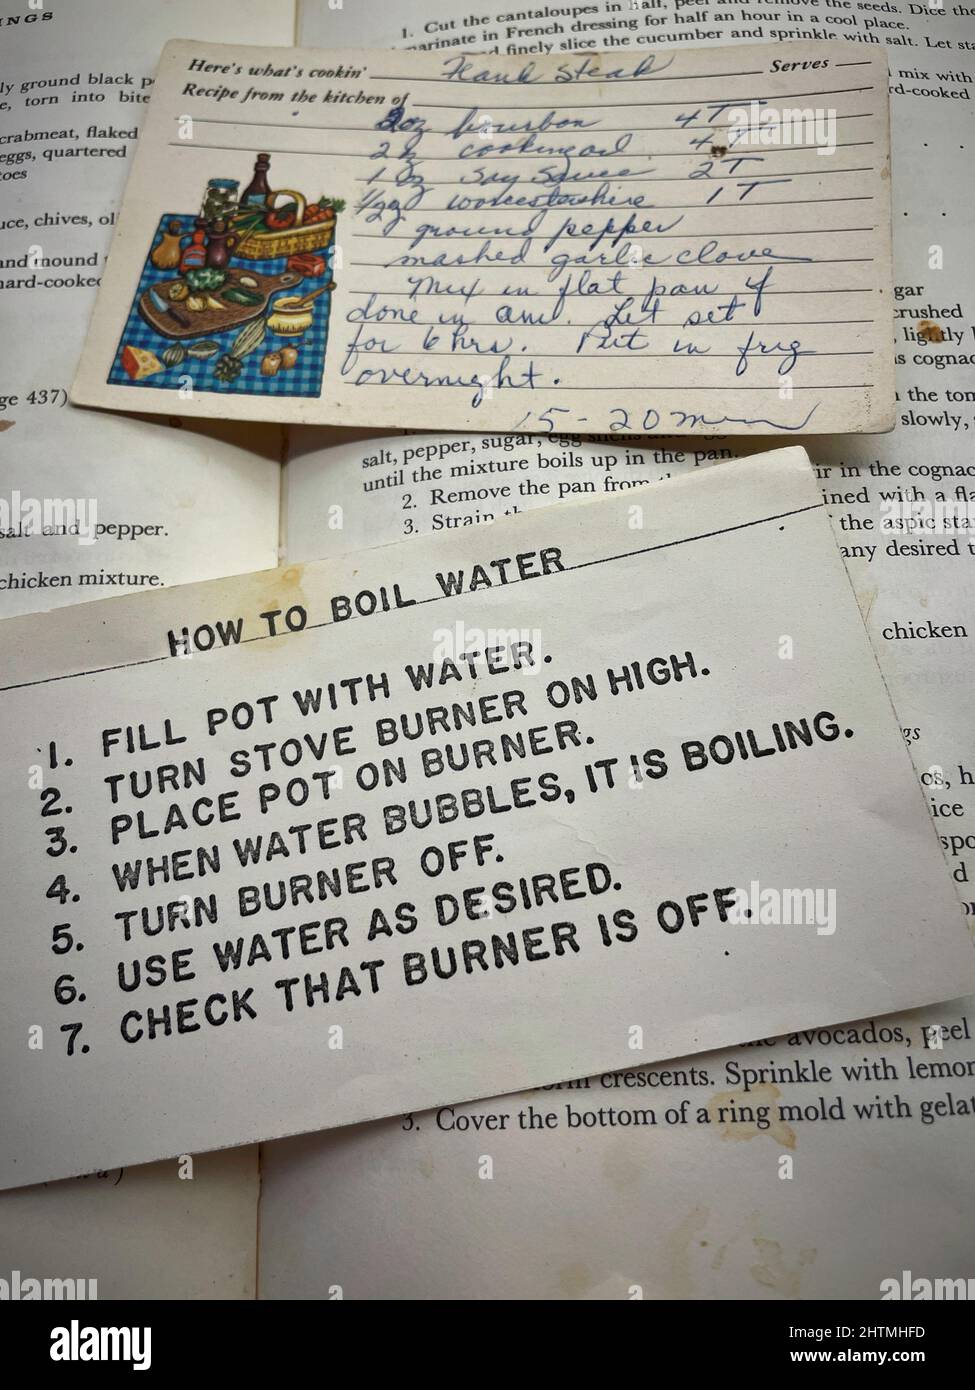 INGS
1. Cut the cantaloupes in half, peel and remove the seeds. Dice the
marinate in French dressing for half an hour in a cool place.
finely slice the cucumber and sprinkle with salt. Let sta
mix with
rd-cooked
ly ground black p
e, torn into bite
crabmeat, flaked
eggs, quartered
toes
uce, chives, oli
and mound
hard-cooked
ge 437)
salt and pepper.
chicken mixture.
Here's what's cookin' Flank Steak Serves
Recipe from the kitchen of
2 oz bourbon 4 T
2 oz cooking oil 4 T
1 oz soy sauce 2 T
1/2 oz worcestershire 1 T
ground pepper
mashed garlic clove
Mix in flat pan if
done in am. Let set
for 6 hrs. Put in frig
overnight.
15-20 min
gar
crushed
, lightly
as cognac
the tom
slowly,
salt, pepper, sugar, egg shells and
until the mixture boils up in the pan.
ir in the cognac
2. Remove the pan from
ined with a fla
3. Strain
the aspic sta
any desired
chicken
gs
os, h
ice
spo
d
HOW TO BOIL WATER
1. FILL POT WITH WATER.
2. TURN STOVE BURNER ON HIGH.
3. PLACE POT ON BURNER.
4. WHEN WATER BUBBLES, IT IS BOILING.
5. TURN BURNER OFF.
6. USE WATER AS DESIRED.
7. CHECK THAT BURNER IS OFF.
avocados, peel
crescents. Sprinkle with lemon
3. Cover the bottom of a ring mold with gelat
alamy
Image ID: 2HTMHFD
www.alamy.com